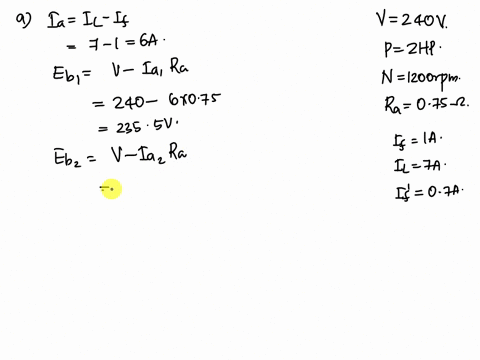 a) Ia = IL - If
= 7-1 = 6A.
Eb1 = V - Ia1 Ra
= 240 - 6×0.75
= 235.5V.
Eb2 = V - Ia2 Ra
=
V = 240V.
P = 2HP.
N = 1200rpm.
Ra = 0.75Ω.
If = 1A.
IL = 7A.
If' = 0.7A.